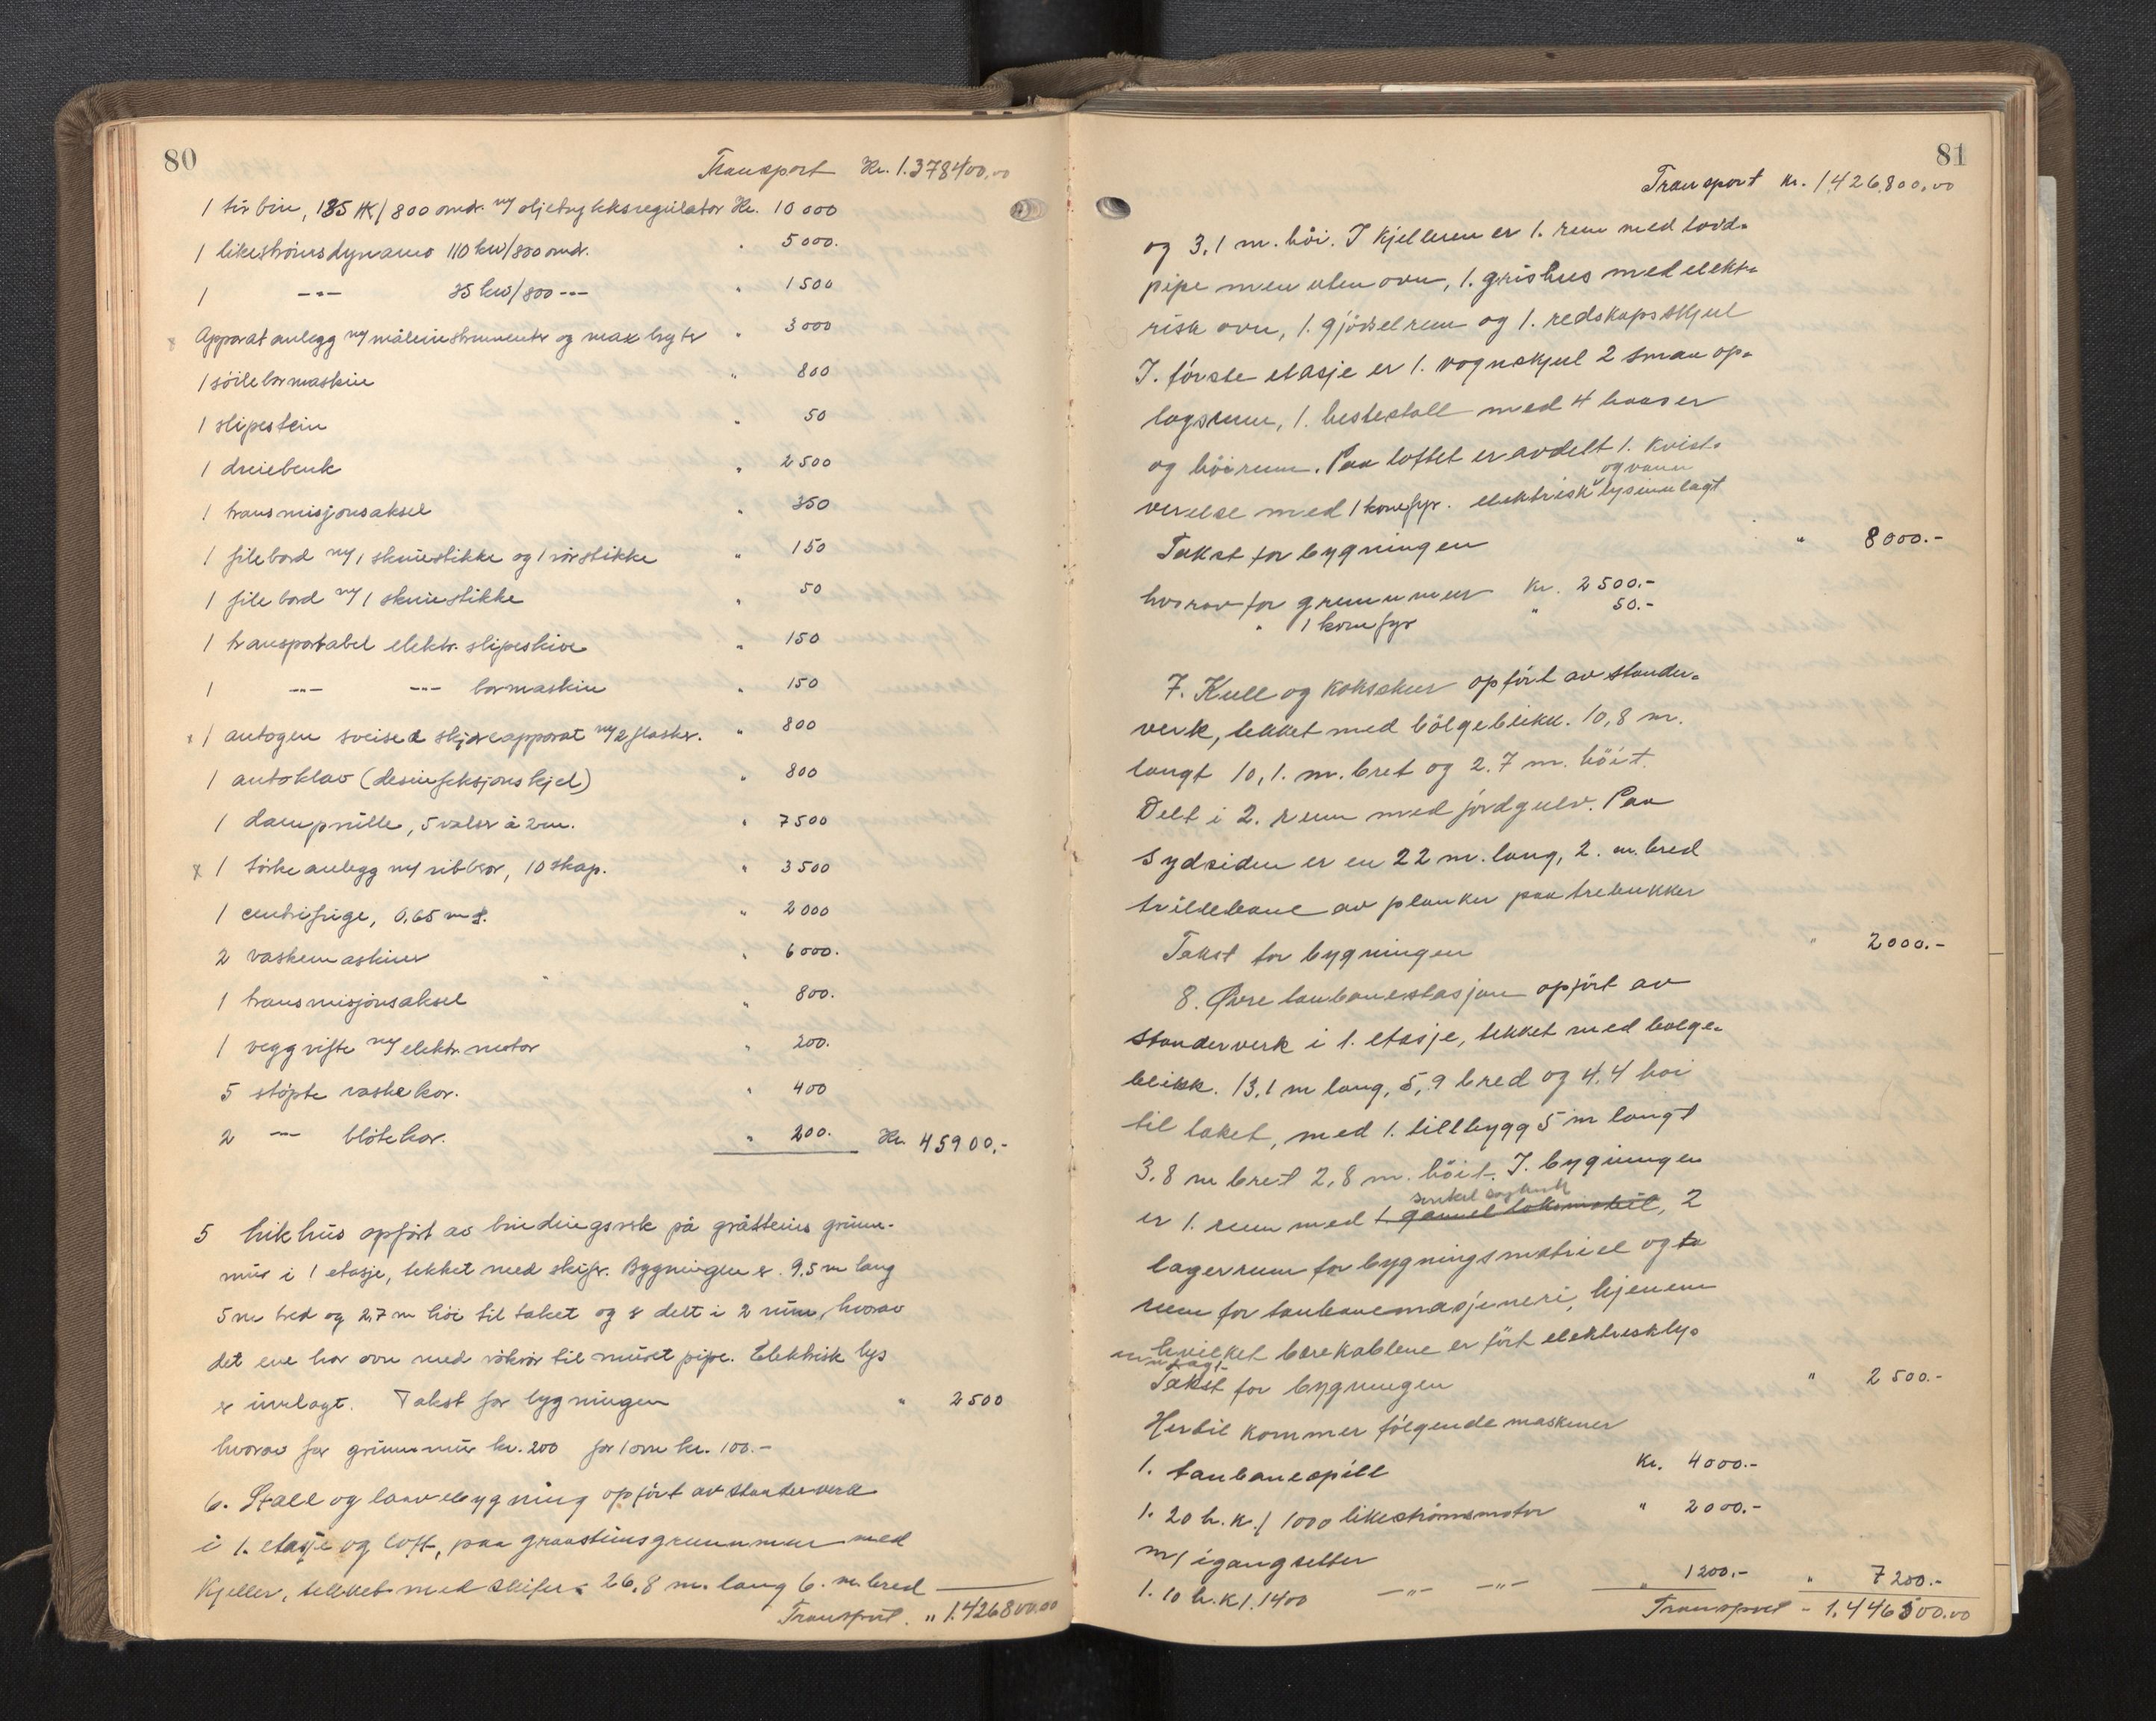 80
Transport Kr. 1.378400,00
1 turbin, 185 HK/800 omdr. m/ oljetrykksregulator Kr. 10 000
1 likestrømsdynamo 110 kw/800 omdr. " 5 000.
1 -"- 35 kw/800 -"- " 1 500
Apparatanlegg m/ måleinstrumenter og max bryter " 3 000
1 søileboremaskin " 800
1 slipestein " 50
1 dreiebenk " 2 500
1 transmisjonsaksel " 350
1 filebord m/ 1 skruestikke og 1 rørstikke " 150
1 filebord m/ 1 skruestikke " 50
1 transportabel elektr. slipeskive " 150
1 -"- -"- bormaskin " 150
x 1 autogen sveise & skjæreapparat m/ 2 flasker. " 800
1 autoklav (desinfeksjonskjel) " 800
1 damprulle, 5 valser à 2 m. " 7500
x 1 tørkeanlegg m/ ribberør, 10 skap. " 3 500
1 centrifuge, 0,65 m " 2 000
2 vaskemaskiner " 6 000.
1 transmisjonsaksel " 800.
1 veggvifte m/ elektr. motor " 200.
5 støpte vaskekar. " 400
2 -"- bløtekar. " 200. Kr. 45900,-
5 likhus opført av bindingsverk på gråsteins grunn-
mur i 1 etasje, tekket med skifer. Bygningen er 9,5 m lang
5 m bred og 2,7 m høi til taket og er delt i 2 rum, hvorav
det ene har ovn med rökrör til muret pipe. Elektrisk lys
er innlagt. Takst for bygningen " 2500
hvorav for grunnmur kr. 200 for 1 ovn kr. 100.-
6. Stall og laavebygning opfört av standerverk
i 1. etasje og loft, paa graasteinsgrunnmur med
Kjeller, tekket med skifer. 26,8 m. lang 6. m. bred
Transport. " 1.426800.00
81
Transport Kr. 1,426,800,00
og 3,1 m. höi. I Kjelleren er 1. rum med lovd-
pipe men uten ovn, 1. grishus med elekt-
risk ovn, 1. gjödselrum og 1. redskapsskjul
I. förste etasje er 1. vognskjul 2 smaa op-
lagsrum, 1. hestestall med 4 baaser
og höirum. Paa loftet er avdelt 1. Kvist-
og vann
verelse med 1 komfyr. elektrisk lysinnlagt
Takst for bygningen " 8000.-
hvorav for grunnmur Kr. 2500.-
" 1 komfyr " 50.-
7. Kull og Koksskur opfört av stander-
verk, tekket med bölgeblikk. 10,8 m.
langt 10,1. m. bret og 2.7 m. höit.
Delt i 2. rum med jordgulv. Paa
sydsiden er en 22 m. lang, 2. m. bred
trillebane av planker paa trebukker
Takst for bygningen " 2000.-
8. Øvre taubanestasjon opfört av
standerverk i 1. etasje, tekket med bolge-
blikk. 13,1 m lang, 5,9 bred og 4,4 hoi
til taket, med 1. tillbygg 5 m langt
3,8 m bret 2,8 m. höit. I. bygningen
er 1. rum med 1. gammel lokomobil, 2
lagerrum for bygningsmatriel og
rum for taubanemasjeneri, hjenem
hvilket bærekablene er fört elektrisklys
innlagt
Takst for bygningen " 2500.-
Hertil kommer fölgende maskiner
1. taubanespill Kr. 4000.-
1. 20 h.K./ 1000 likeströmsmotor " 2000.-
m/ igangsetter
1. 10 h.K/. 1400 -"- -"- " 1200.- " 7200.-
Transport - 1.446500.00